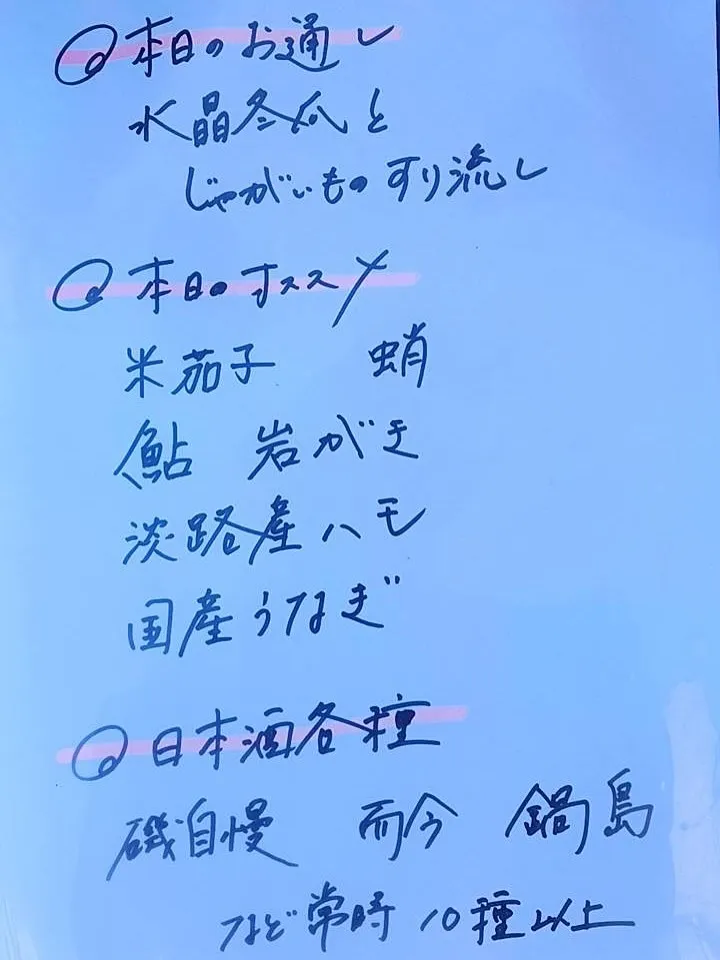 ◎本日のお通し
水晶冬瓜と
じゃがいものすり流し
◎本日のオススメ
米茄子 蛸
鮎 岩がき
淡路産ハモ
国産うなぎ
◎日本酒各種
磯自慢 而今 鍋島
など常時10種以上